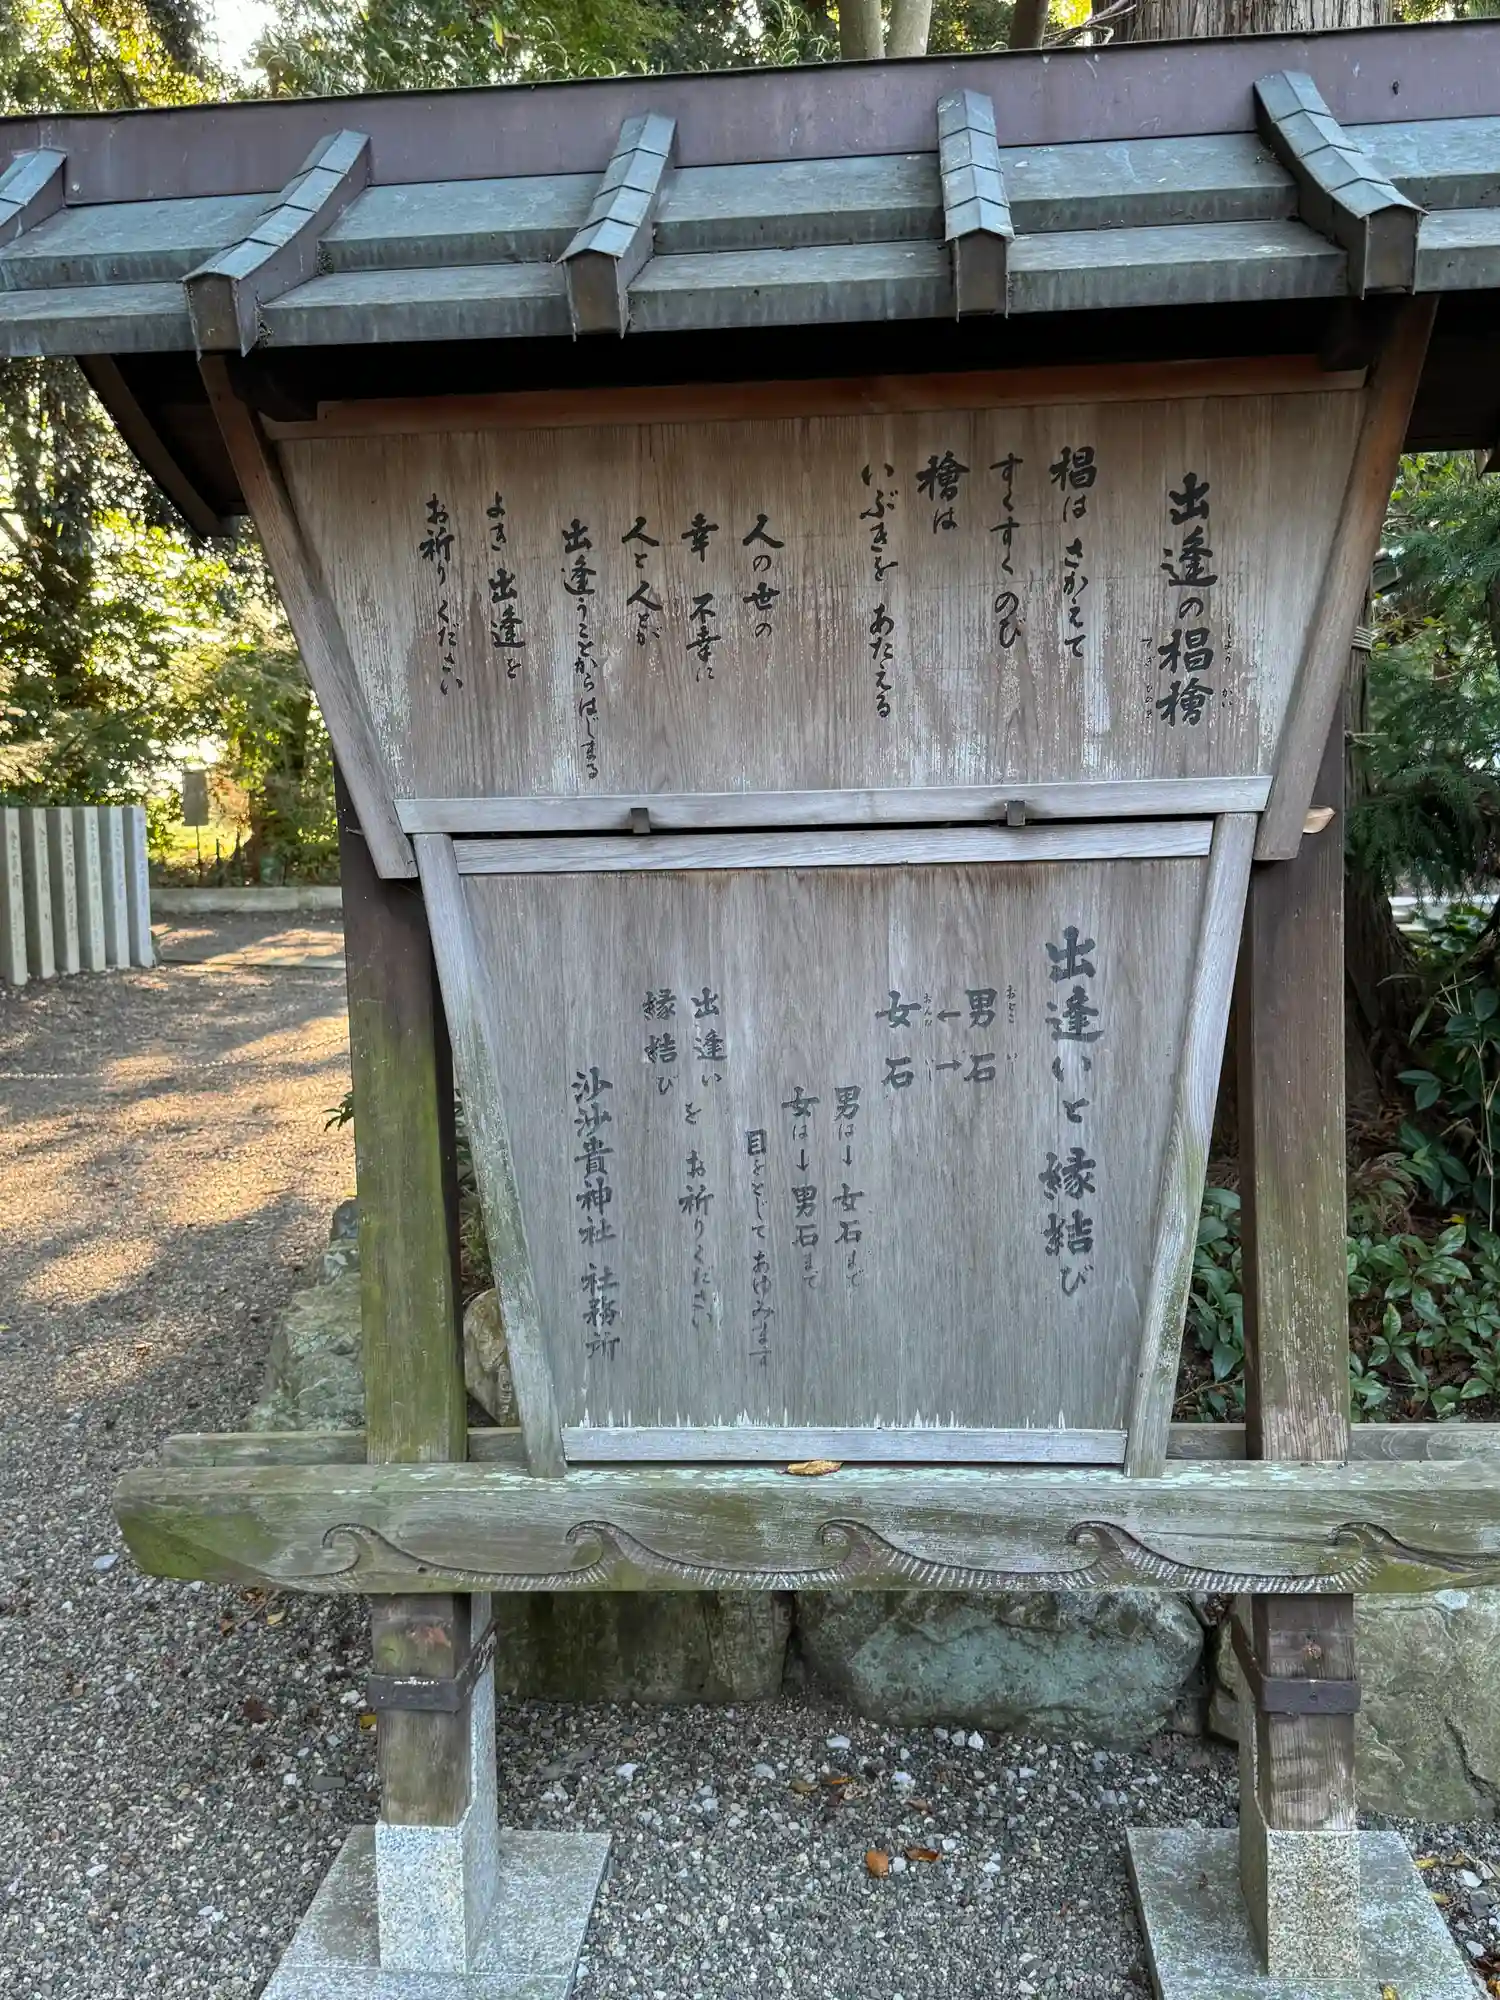 出逢の椙檜
しょう かい
すぎ ひのき
椙は さかえて
すくすくのび
檜は
いぶきを あたえる
人の世の
幸 不幸に
人と人とが
出逢うことからはじまる
よき出逢を
お祈りください
出逢いと縁結び
男石
おとこ いし
←→
女石
おんな いし
男は→女石まで
女は→男石まで
目をとじて あゆみます
出逢い
縁結び
を お祈りください
沙沙貴神社 社務所